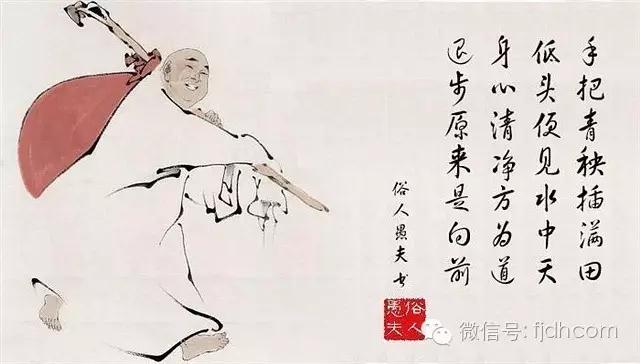 手把青秧插满田
低头便见水中天
身心清净方为道
退步原来是向前
俗人愚夫书
俗人
愚夫
微信号: fjdhcom